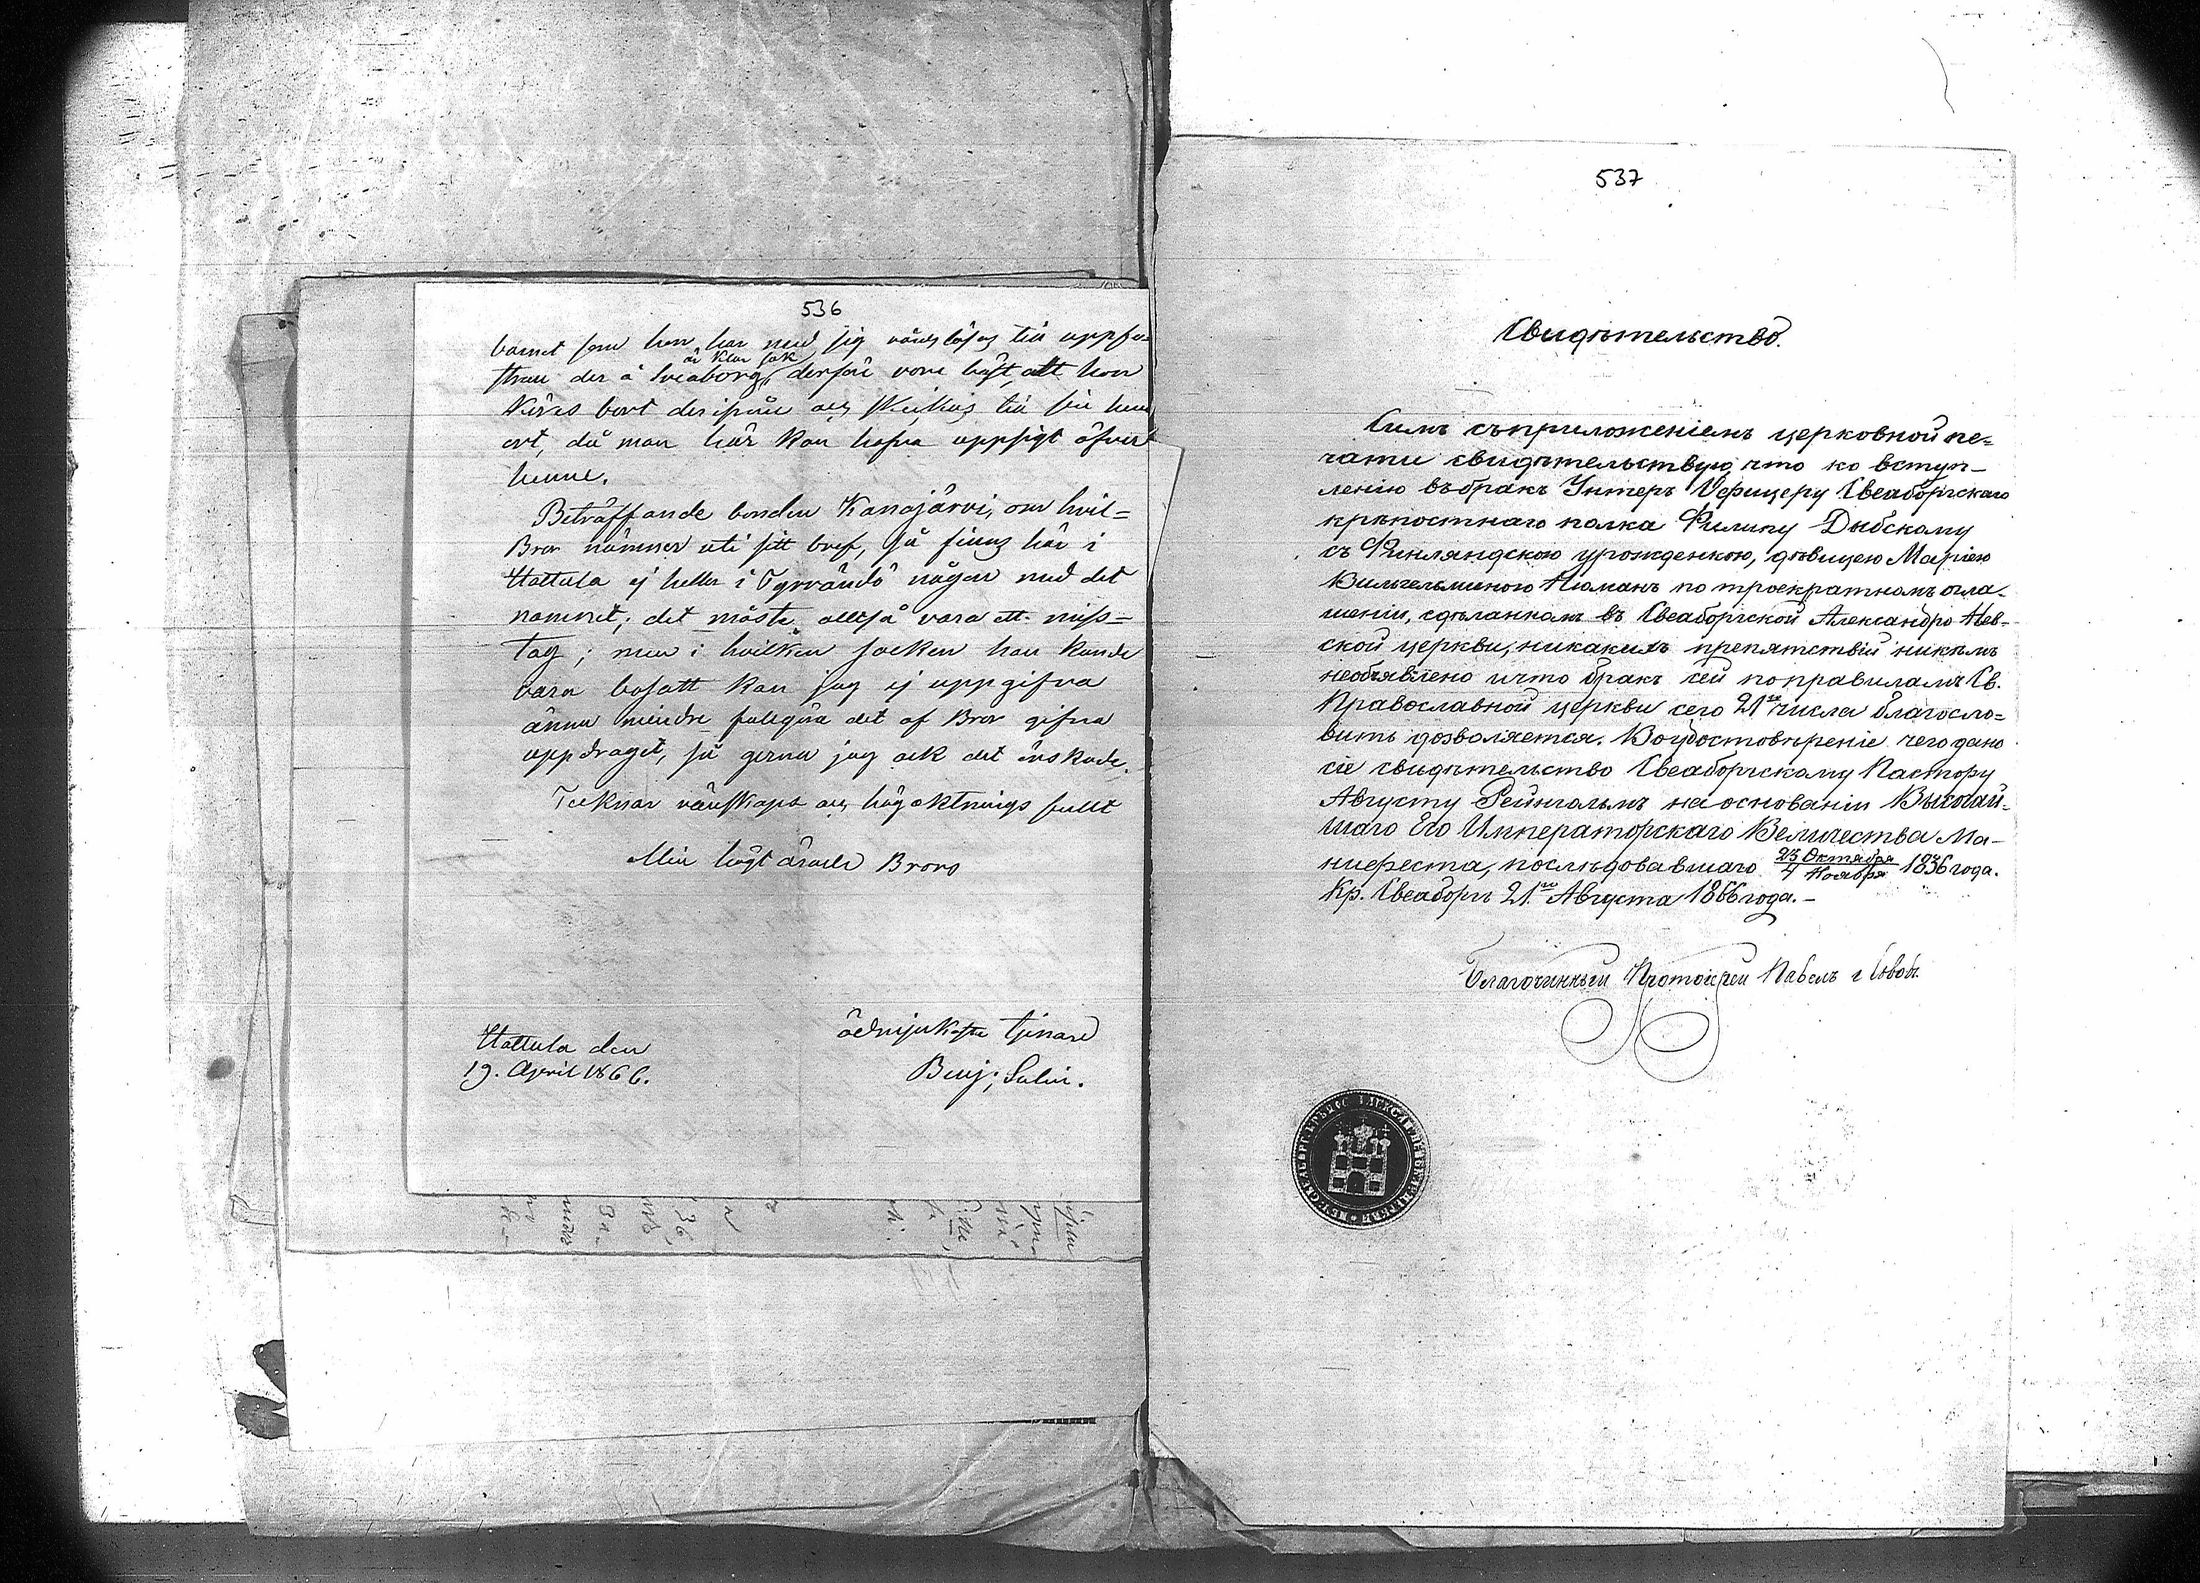 536
barnet som hon har med sig vårdslösas till uppfo
stran der å Sveaborg, är klar sak derföre vore bäst, att hon
köres bort derifrån och skickas till sin hem
ort, då man här kan hafva uppsigt öfver
henne.
Beträffande bonden Kanajärvi, om hvil=
Bror nämner uti sitt bref, så finns här i
Hattula ej heller i Tyrvändö någon med det
namnet; det måste alltså vara ett miss=
tag; men i hvilken socken han kunde
vara bosatt kan jag ej uppgifva
ännu mindre fullgöra det af Bror gifna
uppdraget, så gerna jag ock det önskade.
Tecknar vänskaps och högaktnings fullt
Min högt ärade Brors
ödmjukaste tjenare
Benj. Salin.
Hattula den
19. April 1866.
537
Свидѣтельство.
Симъ съ приложеніемъ церковной пе=
чати свидѣтельствую, что ко вступ-
ленію въ бракъ Унтеръ Офицеру Свеаборгскаго
крѣпостнаго полка Филипу Дыбскому
съ Финляндскою урожденкою, дѣвицею Маріею
Вильгельминою Нюманъ по троекратномъ огла-
шеніи, сдѣланномъ въ Свеаборгской Александро Нев-
ской церкви, никакихъ препятствій никѣмъ
необъявлено и что бракъ сей по правиламъ Св.
Православной церкви сего 21го числа благосло=
вить дозволяется. Во удостовѣреніе чего дано
сіе свидѣтельство Свеаборгскому Пастору
Августу Рейнгольмъ на основаніи Высочай-
шаго Его Императорскаго Величества Ма-
нифеста, послѣдовавшаго 23 Октября / 4 Ноября 1836 года.
Кр. Свеаборгъ 21го Августа 1866 года. -
Благочинный Протоіерей Павелъ